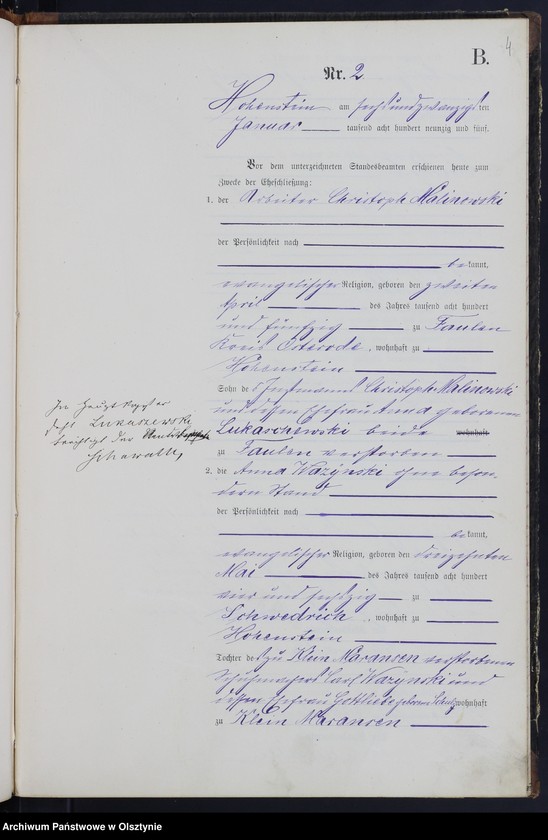 4
B.
Nr. 2
Hohenstein am sechsundzwanzigsten
Januar tausend acht hundert neunzig und fünf.
Vor dem unterzeichneten Standesbeamten erschienen heute zum
Zwecke der Eheschließung:
1. der Arbeiter Christoph Malinowski
der Persönlichkeit nach
bekannt,
evangelischer Religion, geboren den zweiten
April des Jahres tausend acht hundert
und fünfzig zu Faulen
Kreis Osterode, wohnhaft zu
Hohenstein
Sohn des Christoph Malinowski
und dessen Ehefrau Anna geborenen
Lukaschewski beide wohnhaft
zu Faulen verstorben
Im Hauptregister
steht Lukaszewski
2. die Anna Wazynski ohne beson-
dern Stand
der Persönlichkeit nach
bekannt,
evangelischer Religion, geboren den dreizehnten
Mai des Jahres tausend acht hundert
vier und sechzig zu
Schwedrich, wohnhaft zu
Hohenstein
Tochter des zu Klein Maransen verstorbenen
Schuhmachers Carl Wazynski und
dessen Ehefrau Gottliebe geborene Schulz wohnhaft
zu Klein Maransen
Archiwum Państwowe w Olsztynie